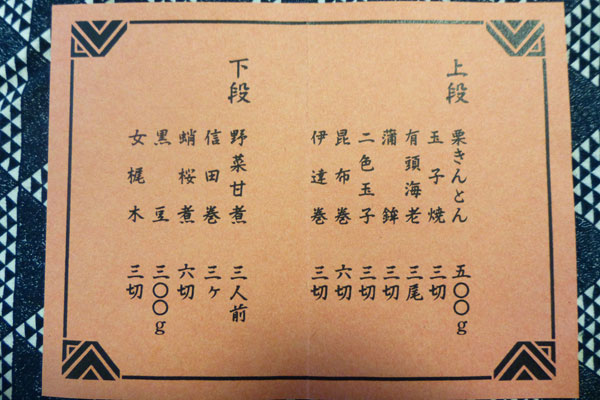 上段
栗きんとん 五〇〇g
玉子焼 三切
有頭海老 三尾
蒲鉾 三切
二色玉子 三切
昆布巻 六切
伊達巻 三切
下段
野菜甘煮 三人前
信田巻 三ヶ
蛸桜煮 六切
黒豆 三〇〇g
女梶木 三切